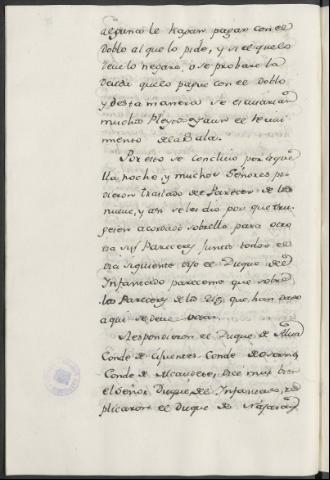 alguno le hagan pagar con el
doblo al que lo pide, y si el que lo
deve lo negare, o se probare la
deuda que lo pague con el doblo
y desta manera se escusaran
muchos Pleytos y aun el
mento de la Bala.
Por esto se concluio por aque
lla noche, y muchos Señores pi-
dieron traslado del Parecer de los
nueve, y asi se les dio por que tru-
gesen acordado sobrello para otro
dia sus Pareceres juntos todos el
dia siguiente dijo el Duque del
Infantado pareceme que sobre
los Pareceres de los que han dado
aqui se deve votar.
Respondieron el Duque de Alva
Conde de Cifuentes, Conde de Osorno,
Conde de Alcaudete, Dice muy bien
el Señor Duque del Infantado, re
plicaron el Duque de Najara,